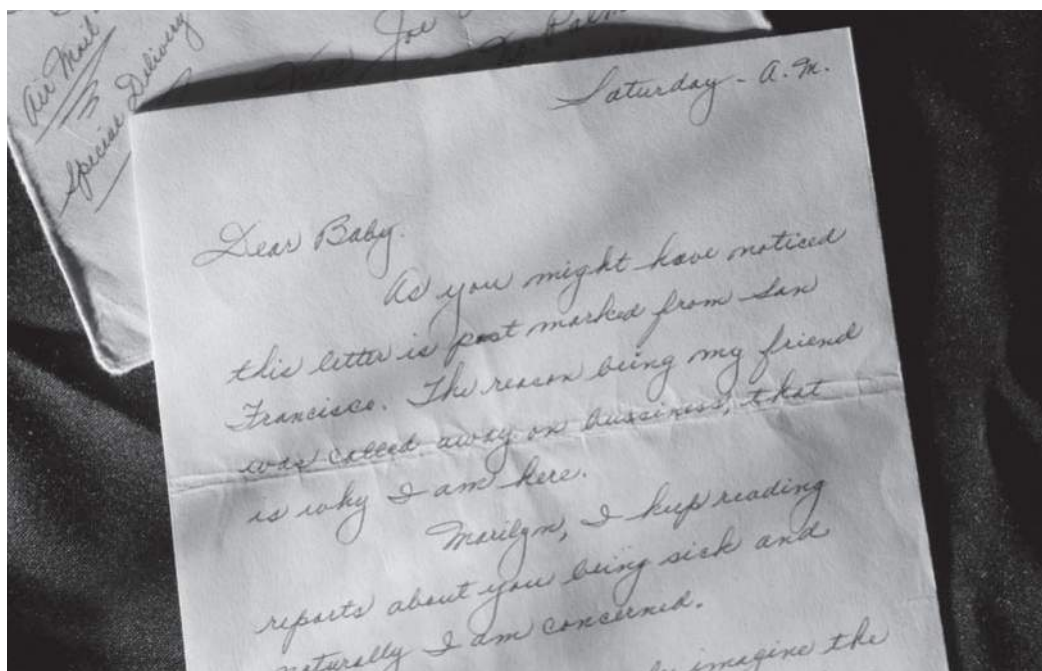 Air Mail
Special Delivery
Joe
Palm
Saturday - A.M.
Dear Baby.
As you might have noticed
this letter is post marked from San
Francisco. The reason being my friend
was called away on bussiness, that
is why I am here.
Marilyn, I keep reading
reports about you being sick and
naturally I am concerned.
imagine the